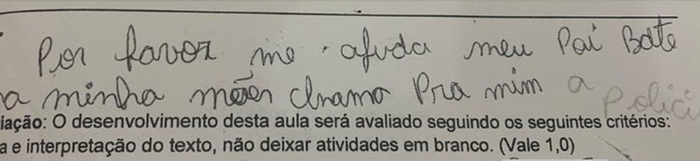 Por favor me ajuda meu Pai Bate
a minha mães chamo Pra mim a polici
iação: O desenvolvimento desta aula será avaliado seguindo os seguintes critérios:
a e interpretação do texto, não deixar atividades em branco. (Vale 1,0)